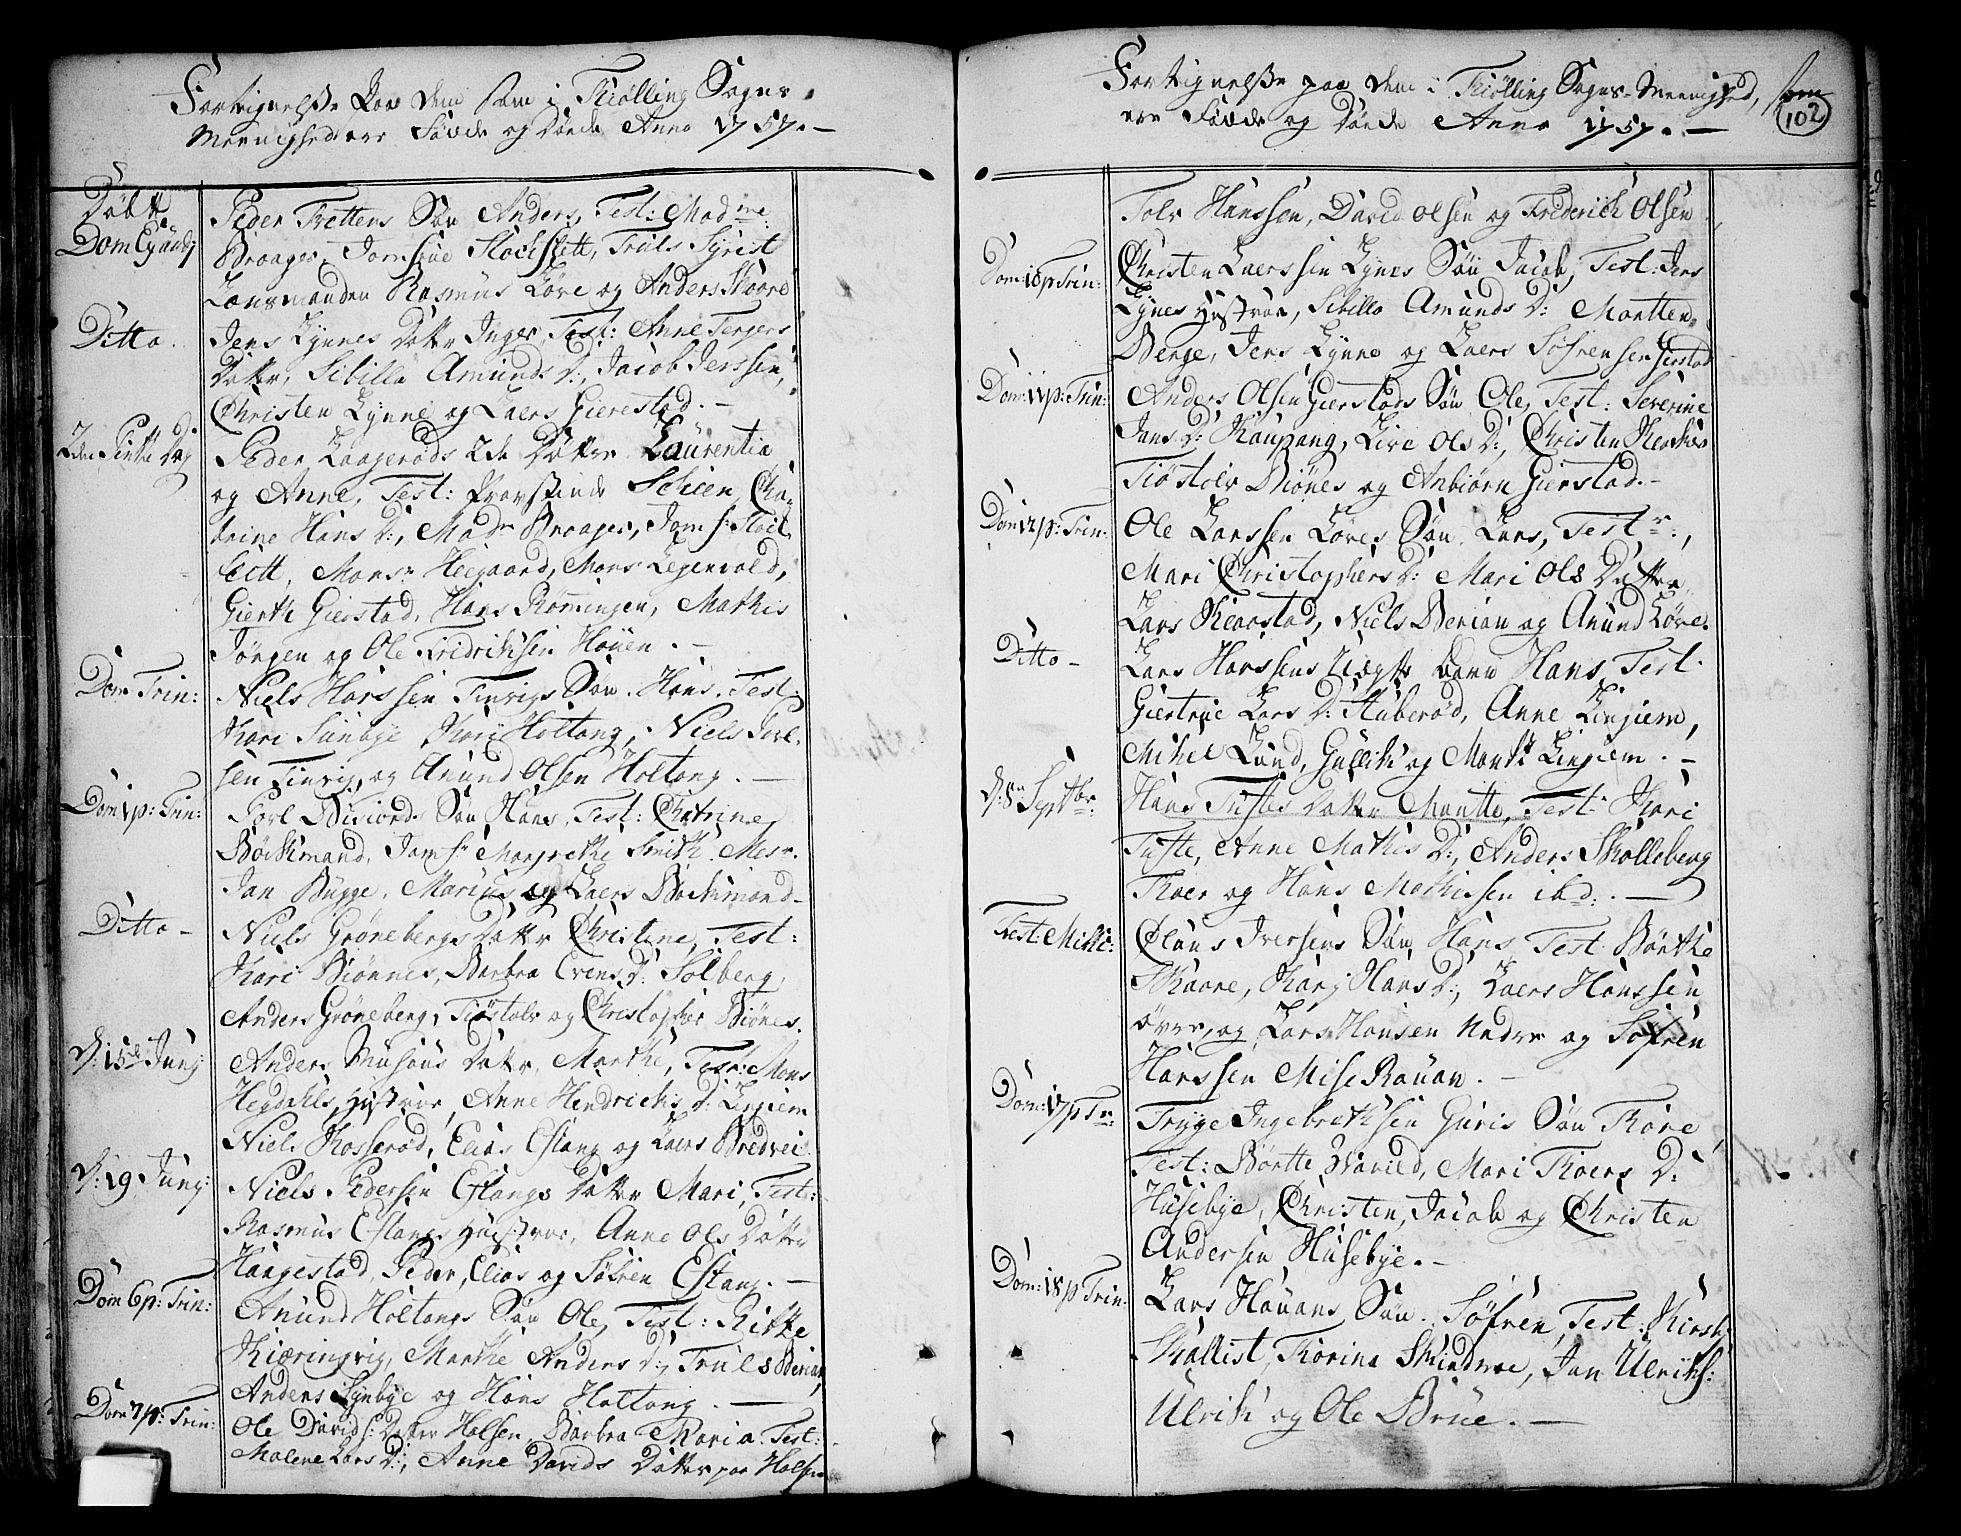 Fortegnelsse paa dem som i Thiølling Sogns
Menighed ere Fødde og Døede Anno 1757. —
Døbte
Dom Exaudj
Peder Trettens Søn Anders, Test: Madme
Braager, Jomfrue Stochflett, Truls Syrist
Lensmanden Rasmus Løve og Anders Skaare
Ditto.
Jens Lynnes Datter Inger, Test: Anne Torgers
Datter, Sibilla Amunds D:, Jacob Jenssen,
Christen Lynne og Laers Gierestad. —
2den Pintze Dag
Peder Laagerøds 2de Døttre Laurentia
og Anne, Test: Provstinde Schien, Cha-
trine Hans D:, Madm Braager, Jomf: Stoch
flett, Monsr Heegaard, Monsr Legenvald,
Gierth Gierstad, Hans Rømmingen, Mathis
Jørgen og Ole Fridrichsen Houen. —
Dom Trin:
Niels Hanssen Tinvigs Søn Hans, Test:
Kari Sunbye Kari Holtang, Niels Torl
sen Tinvig, og Anund Olsen Holtang. —
Dom 1 p: Trin:
Torl Biuiords Søn Hans, Test: Chatrine
Böchmand, Jomfr Margrethe Smith, Mesr.
Jan Bugge, Marius og Laers Bochmand —
Ditto —
Niels Grønebergs Datter Christine, Test:
Kari Biønnes, Barbra Evens D: Solberg,
Anders Grøneberg, Tiøstolv og Christopher Biønes.
D: 15de Junj
Anders Musøus Datter Marthe, Test: Mons
Hegdahls Hustrue, Anne Hendrichs D: Lingiem
Niels Kosserød, Elias Eftang og Laers Bredvei
D: 19 Junj:
Niels Pedersen Eftangs Datter Mari, Test:
Rasmus Eftangs Hustrue, Anne Ols Datter
Haagestad, Peder, Elias og Søfren Eftang. —
Dom 6 p: Trin:
Anund Holtangs Søn Ole, Test: Rikke
Kiæringvig, Marthe Anders D:, Truls Berian
Anders Synbye og Hans Holtang. —
Dom 7 p: Trin:
Ole Davids: Datter Halsen, Barbra Maria. Test:
Malene Lars D:, Anne Davids Datter paa Halsen
Fortegnelsse paa dem i Thiølling Sogns-Menighed, som
ere Fødde og Døede Anno 1757. —
102
Tolv Hanssen, David Olsen og Friderich Olsen
Dom: 10 p Trin:
Christen Laerssen Lynes Søn Jacob, Test: Jens
Lynes Hustrue, Sibilla Amunds D: Marthen
Berge, Jens Lynne og Laers Søfrensen Gierstad
Dom: 11 p: Trin:
Anders Olsen Gierstads Søn Ole, Test: Severine
Jans D: Kaupang, Live Ols D:, Christen
Tiøstolv Biønes og Anbiørn Gierstad. —
Dom: 12 p: Trin:
Ole Larssen Løves Søn Lars, Testr:,
Mari Christophers D: Mari Ols Datter
Lars Kiærstad, Niels Berian og Anund Løve.
Ditto —
Lars Hanssens Uægte Barn Hans, Test:
Giertrue Lars D: Huberød, Anne Lingiem,
Mikel Lund, Gullik og Marth Lingiem. —
D: 8de Septbr:
Hans Tuftes Datter Marthe, Test: Kari
Tufte, Anne Mathis D:, Anders Skalleberg
Thoer og Hans Mathissen ibd:. —
Fest: Mikk:
Claus Iversens Søn Hans Test: Børthe
Skaare, Karj Hans D:, Laers Hanssen
øvre, og Lars Hansen nedre og Søfren
Hanssen Mise Rauan. —
Dom: 17 p Trn:
Tryge Ingebrethsen Guris Søn Thore,
Test: Børtte Varild, Mari Thoers D:
Husebye, Christen, Jacob og Christen
Andersen Husebye. —
Dom: 18 p Trin:
Lars Hauans Søn Søfren, Test: Kirst:
Skallist, Thorine Skindmoe, Jan Ulriks:
Ulrik og Ole Brue. —